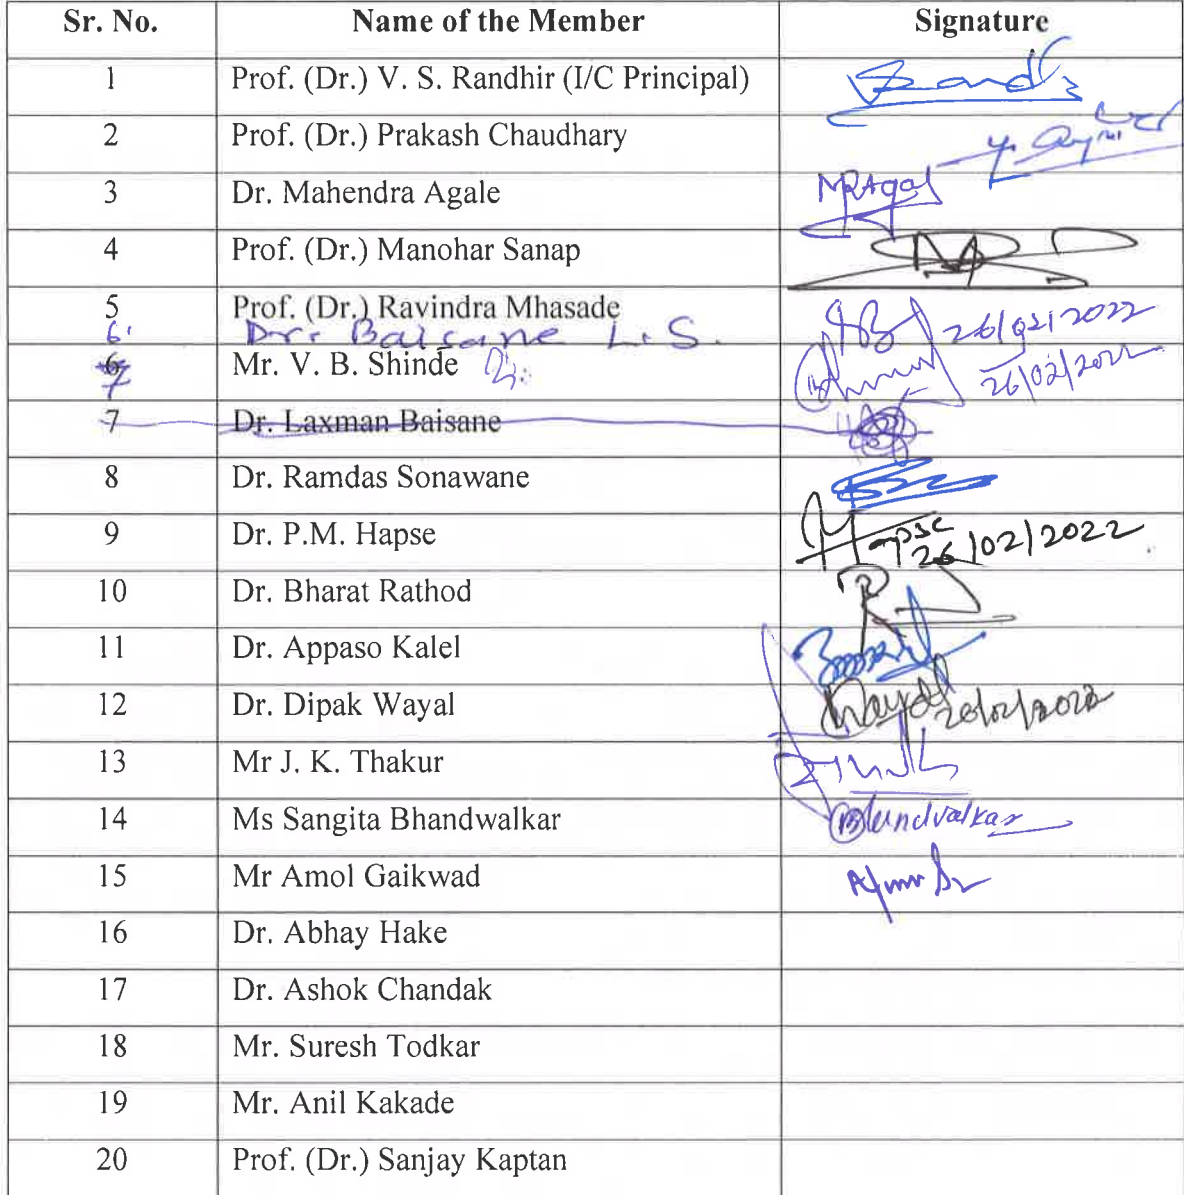 Sr. No. Name of the Member Signature
1 Prof. (Dr.) V. S. Randhir (I/C Principal)
2 Prof. (Dr.) Prakash Chaudhary
3 Dr. Mahendra Agale MRAgal
4 Prof. (Dr.) Manohar Sanap
5 Prof. (Dr.) Ravindra Mhasade
6. Dr. Baisane L. S. 26/02/2022
6 7 Mr. V. B. Shinde Dr. 26/02/2022
7 Dr. Laxman Baisane
8 Dr. Ramdas Sonawane
9 Dr. P.M. Hapse 26/02/2022
10 Dr. Bharat Rathod
11 Dr. Appaso Kalel
12 Dr. Dipak Wayal Wayal 26/02/2022
13 Mr J. K. Thakur
14 Ms Sangita Bhandwalkar Bhandvalkar
15 Mr Amol Gaikwad
16 Dr. Abhay Hake
17 Dr. Ashok Chandak
18 Mr. Suresh Todkar
19 Mr. Anil Kakade
20 Prof. (Dr.) Sanjay Kaptan